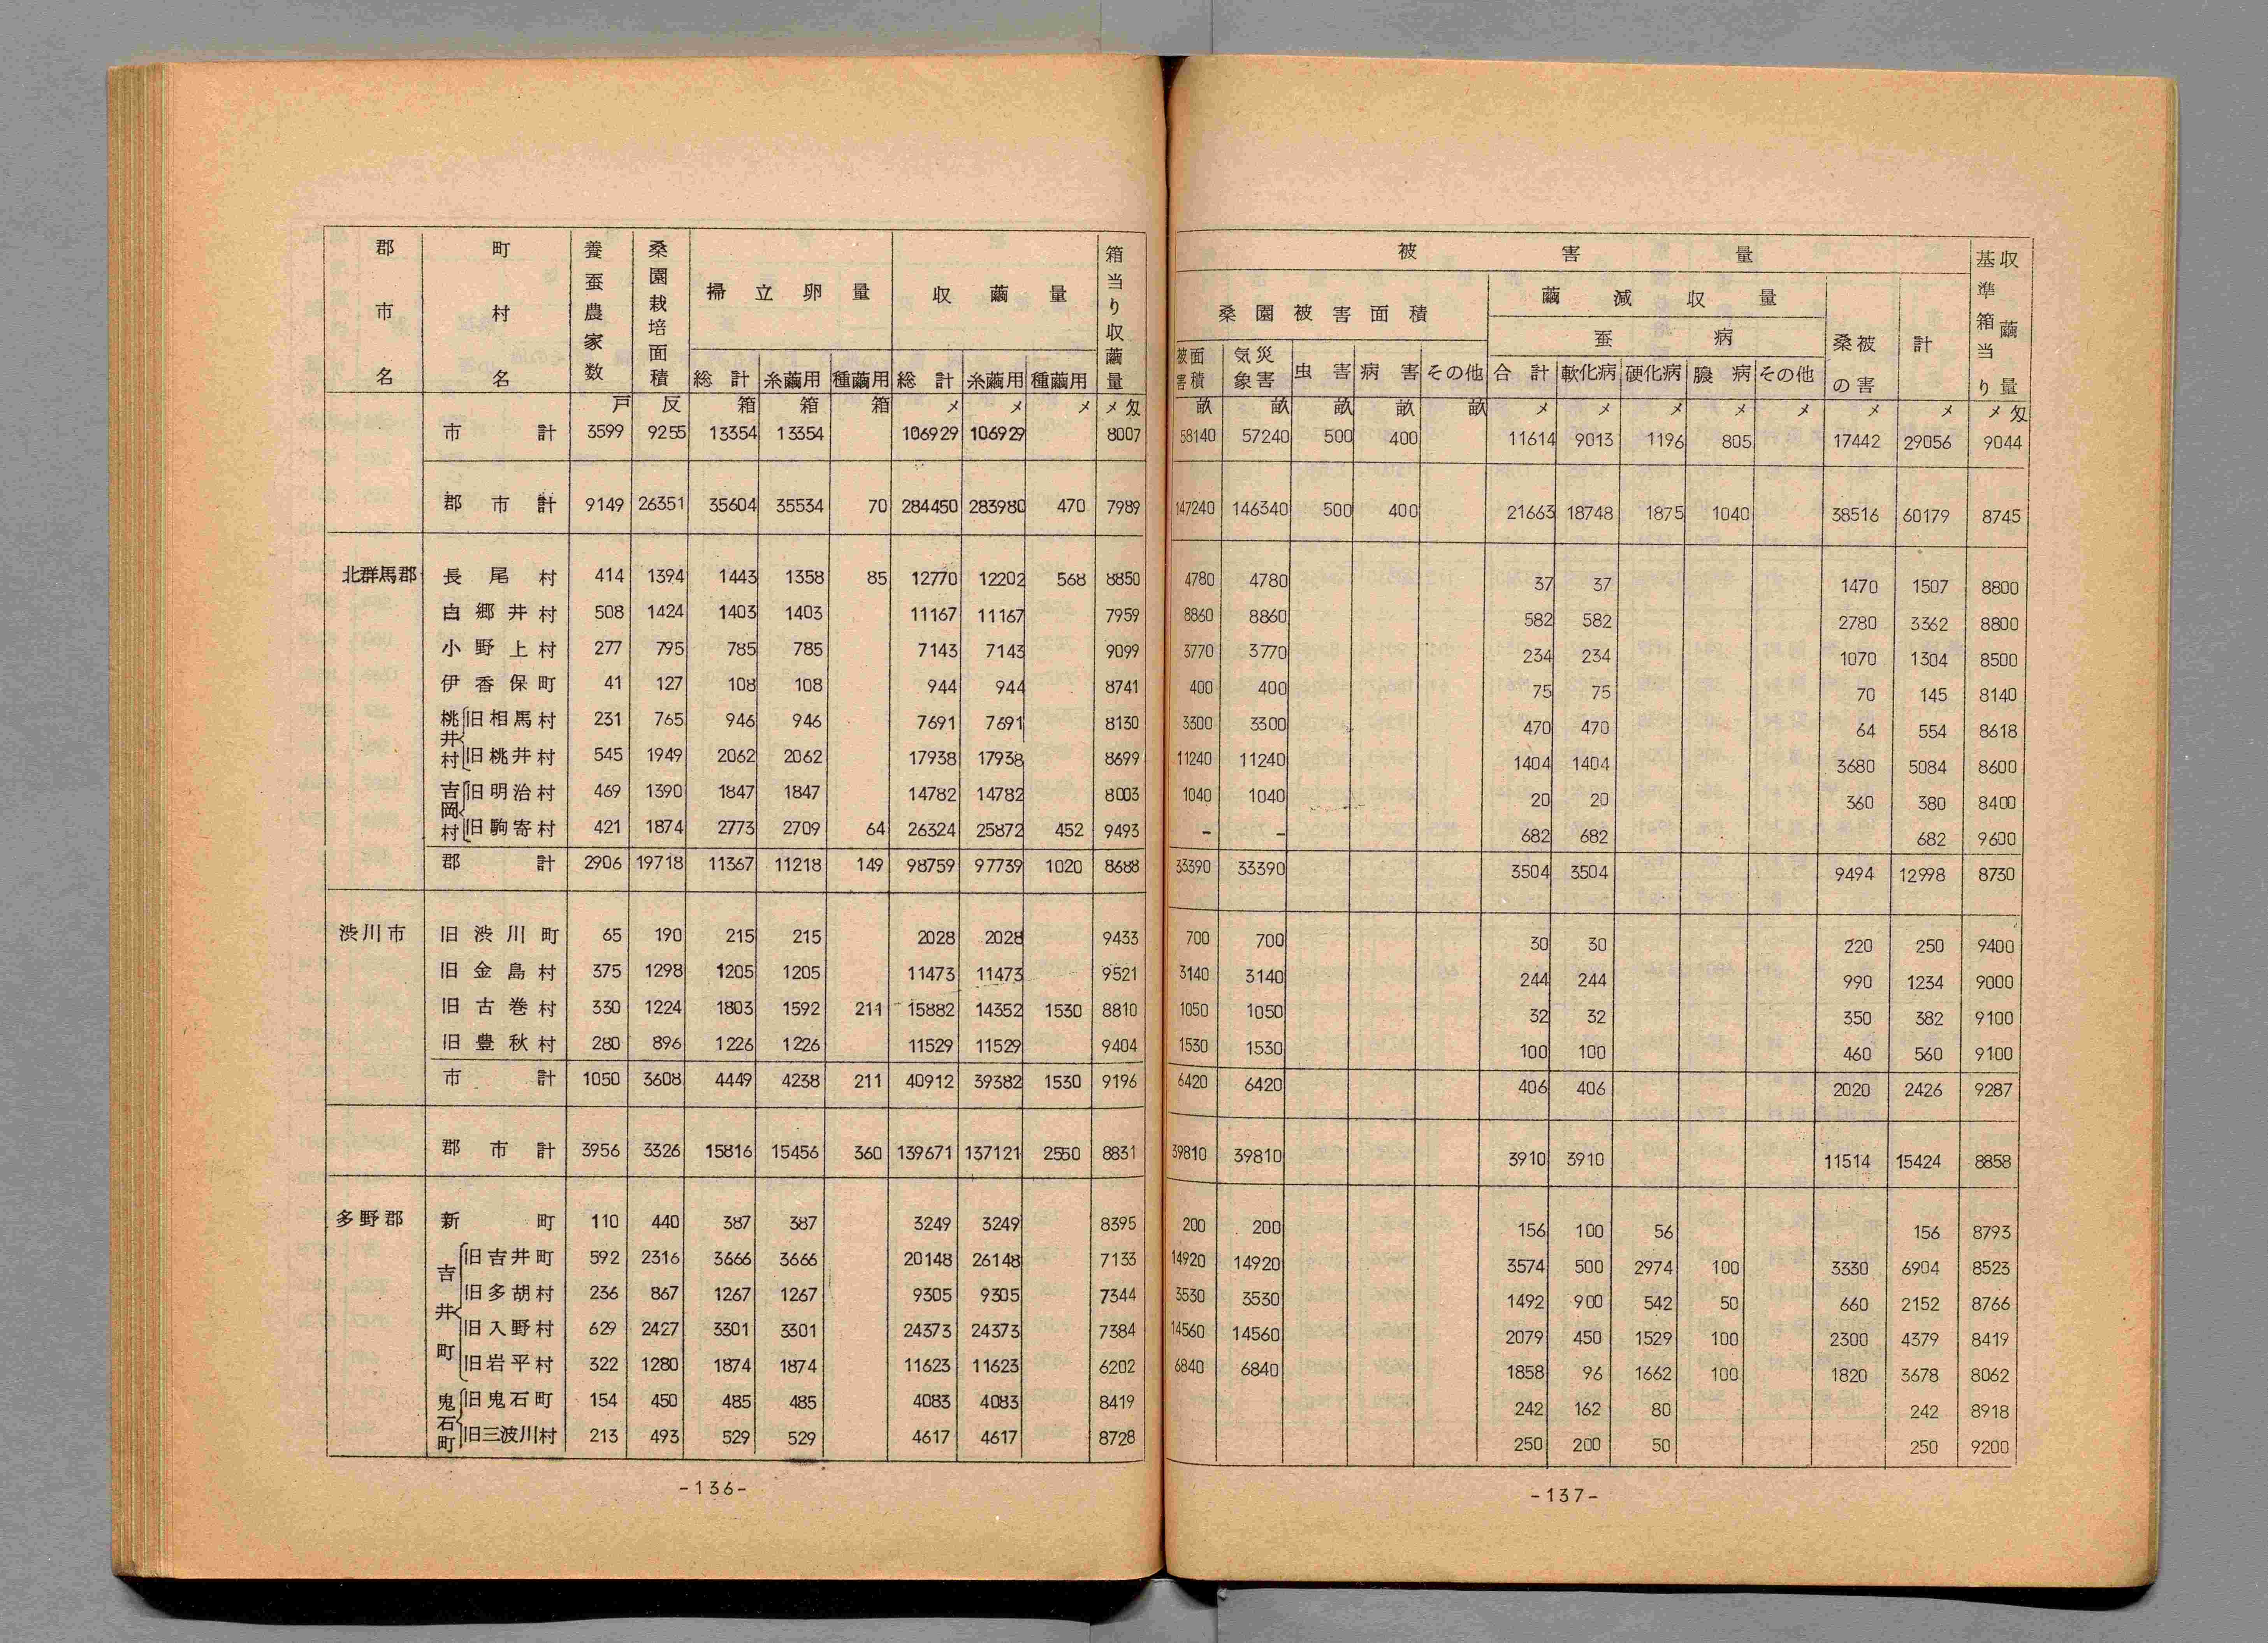 郡市名 町村名 養蚕農家数 桑園栽培面積 掃立卵量 収繭量 箱当り収繭量
総計 糸繭用 種繭用 総計 糸繭用 種繭用
戸 反 箱 箱 箱 メ メ メ メ匁
市計 3599 9255 13354 13354 106929 106929 8007
郡市計 9149 26351 35604 35534 70 284450 283980 470 7989
北群馬郡 長尾村 414 1394 1443 1358 85 12770 12202 568 8850
白郷井村 508 1424 1403 1403 11167 11167 7959
小野上村 277 795 785 785 7143 7143 9099
伊香保町 41 127 108 108 944 944 8741
桃井村 旧相馬村 231 765 946 946 7691 7691 8130
旧桃井村 545 1949 2062 2062 17938 17938 8699
吉岡村 旧明治村 469 1390 1847 1847 14782 14782 8003
旧駒寄村 421 1874 2773 2709 64 26324 25872 452 9493
郡計 2906 19718 11367 11218 149 98759 97739 1020 8688
渋川市 旧渋川町 65 190 215 215 2028 2028 9433
旧金島村 375 1298 1205 1205 11473 11473 9521
旧古巻村 330 1224 1803 1592 211 15882 14352 1530 8810
旧豊秋村 280 896 1226 1226 11529 11529 9404
市計 1050 3608 4449 4238 211 40912 39382 1530 9196
郡市計 3956 3326 15816 15456 360 139671 137121 2550 8831
多野郡 新町 110 440 387 387 3249 3249 8395
吉井町 旧吉井町 592 2316 3666 3666 20148 26148 7133
旧多胡村 236 867 1267 1267 9305 9305 7344
旧入野村 629 2427 3301 3301 24373 24373 7384
旧岩平村 322 1280 1874 1874 11623 11623 6202
鬼石町 旧鬼石町 154 450 485 485 4083 4083 8419
旧三波川村 213 493 529 529 4617 4617 8728
-136-
被害量 基準箱当り収繭量
桑園被害面積 繭減収量
蚕病 桑被の害 計
被害面積 気象災害 虫害 病害 その他 合計 軟化病 硬化病 膿病 その他
畝 畝 畝 畝 畝 メ メ メ メ メ メ メ メ匁
58140 57240 500 400 11614 9013 1196 805 17442 29056 9044
147240 146340 500 400 21663 18748 1875 1040 38516 60179 8745
4780 4780 37 37 1470 1507 8800
8860 8860 582 582 2780 3362 8800
3770 3770 234 234 1070 1304 8500
400 400 75 75 70 145 8140
3300 3300 470 470 64 554 8618
11240 11240 1404 1404 3680 5084 8600
1040 1040 20 20 360 380 8400
- - 682 682 682 9600
33390 33390 3504 3504 9494 12998 8730
700 700 30 30 220 250 9400
3140 3140 244 244 990 1234 9000
1050 1050 32 32 350 382 9100
1530 1530 100 100 460 560 9100
6420 6420 406 406 2020 2426 9287
39810 39810 3910 3910 11514 15424 8858
200 200 156 100 56 156 8793
14920 14920 3574 500 2974 100 3330 6904 8523
3530 3530 1492 900 542 50 660 2152 8766
14560 14560 2079 450 1529 100 2300 4379 8419
6840 6840 1858 96 1662 100 1820 3678 8062
242 162 80 242 8918
250 200 50 250 9200
-137-